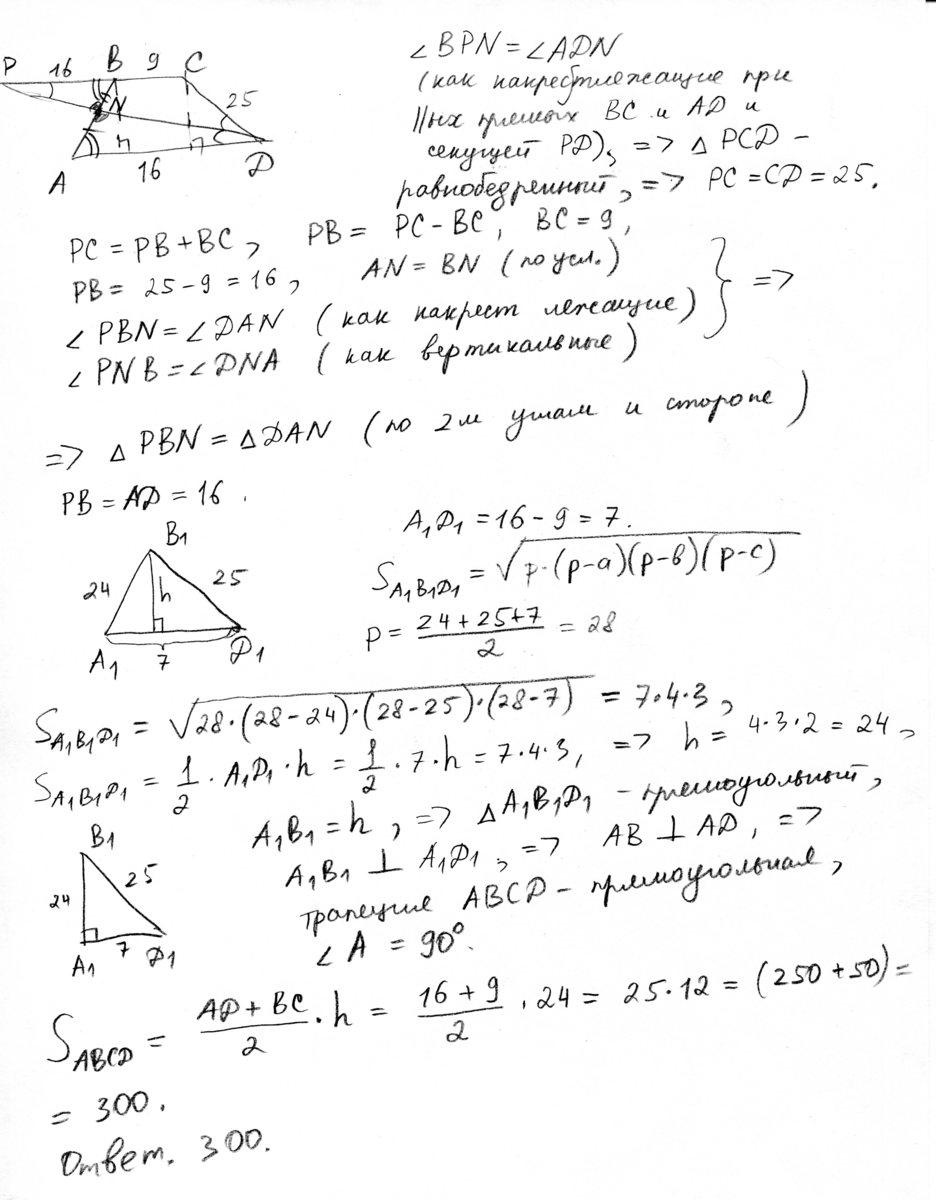 P 16 B 9 C
N 25
h
A 16 D
∠BPN = ∠ADN
(как накрест лежащие при
||ых прямых BC и AD и
секущей PD), => △ PCD –
равнобедренный, => PC = CD = 25.
PC = PB + BC, PB = PC - BC, BC = 9,
PB = 25 - 9 = 16, AN = BN (по усл.)
∠ PBN = ∠DAN (как накрест лежащие) } =>
∠ PNB = ∠DNA (как вертикальные)
=> △ PBN = △DAN (по 2м углам и стороне)
PB = AD = 16.
B1
24 h 25
A1 7 D1
A₁D₁ = 16 - 9 = 7.
S_A₁B₁D₁ = √p·(p-a)(p-в)(p-c)
p = (24 + 25 + 7)/2 = 28
S_A₁B₁D₁ = √28·(28-24)·(28-25)·(28-7) = 7·4·3,
S_A₁B₁D₁ = 1/2 · A₁D₁ · h = 1/2 · 7 · h = 7·4·3, => h = 4·3·2 = 24,
B1
24 25
A1 7 D1
A₁B₁ = h, => △A₁B₁D₁ - прямоугольный,
A₁B₁ ⊥ A₁D₁, => AB ⊥ AD, =>
трапеция ABCD – прямоугольная,
∠A = 90°.
S_ABCD = (AD + BC)/2 · h = (16 + 9)/2 · 24 = 25·12 = (250 + 50) =
= 300.
Ответ. 300.